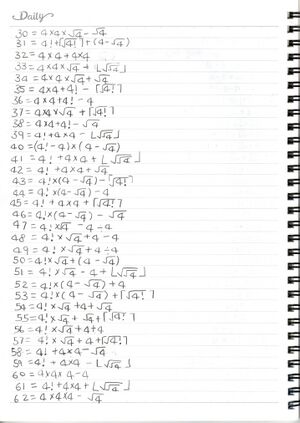 Daily
30 = 4×4×√4-√4
31 = 4!+⌈√4!⌉+(4-√4)
32 = 4×4+4×4
33 = 4×4×√4 + ⌊√√4⌋
34 = 4×4×√4+√4
35 = 4×4+4! - ⌈√4!⌉
36 = 4×4+4! - 4
37 = 4×4×√4 + ⌈√4!⌉
38 = 4×4+4! - √4
39 = 4!+4×4 - ⌊√√4⌋
40 = (4!-4)×(4-√4)
41 = 4! + 4×4 + ⌊√√4⌋
42 = 4! + 4×4 + √4
43 = 4!×(4-√4) - ⌈√4!⌉
44 = 4!×(4-√4) - 4
45 = 4! + 4×4 + ⌈√4!⌉
46 = 4!×(4-√4) - √4
47 = 4!×√4 - 4÷4
48 = 4!×√4+4-4
49 = 4!×√4+4÷4
50 = 4!×√4+(4-√4)
51 = 4!×√4 - 4 + ⌊√√4⌋
52 = 4!×(4-√4) + 4
53 = 4!×(4-√4) + ⌈√4!⌉
54 = 4!×√4+4+√4
55 = 4!×√4+√4+⌈√4!⌉
56 = 4!×√4+4+4
57 = 4!×√4+4+⌈√4!⌉
58 = 4! + 4×4 - √4
59 = 4! + 4×4 - ⌊√√4⌋
60 = 4×4×4-4
61 = 4!+4×4+⌊√√4⌋
62 = 4×4×4 - √4